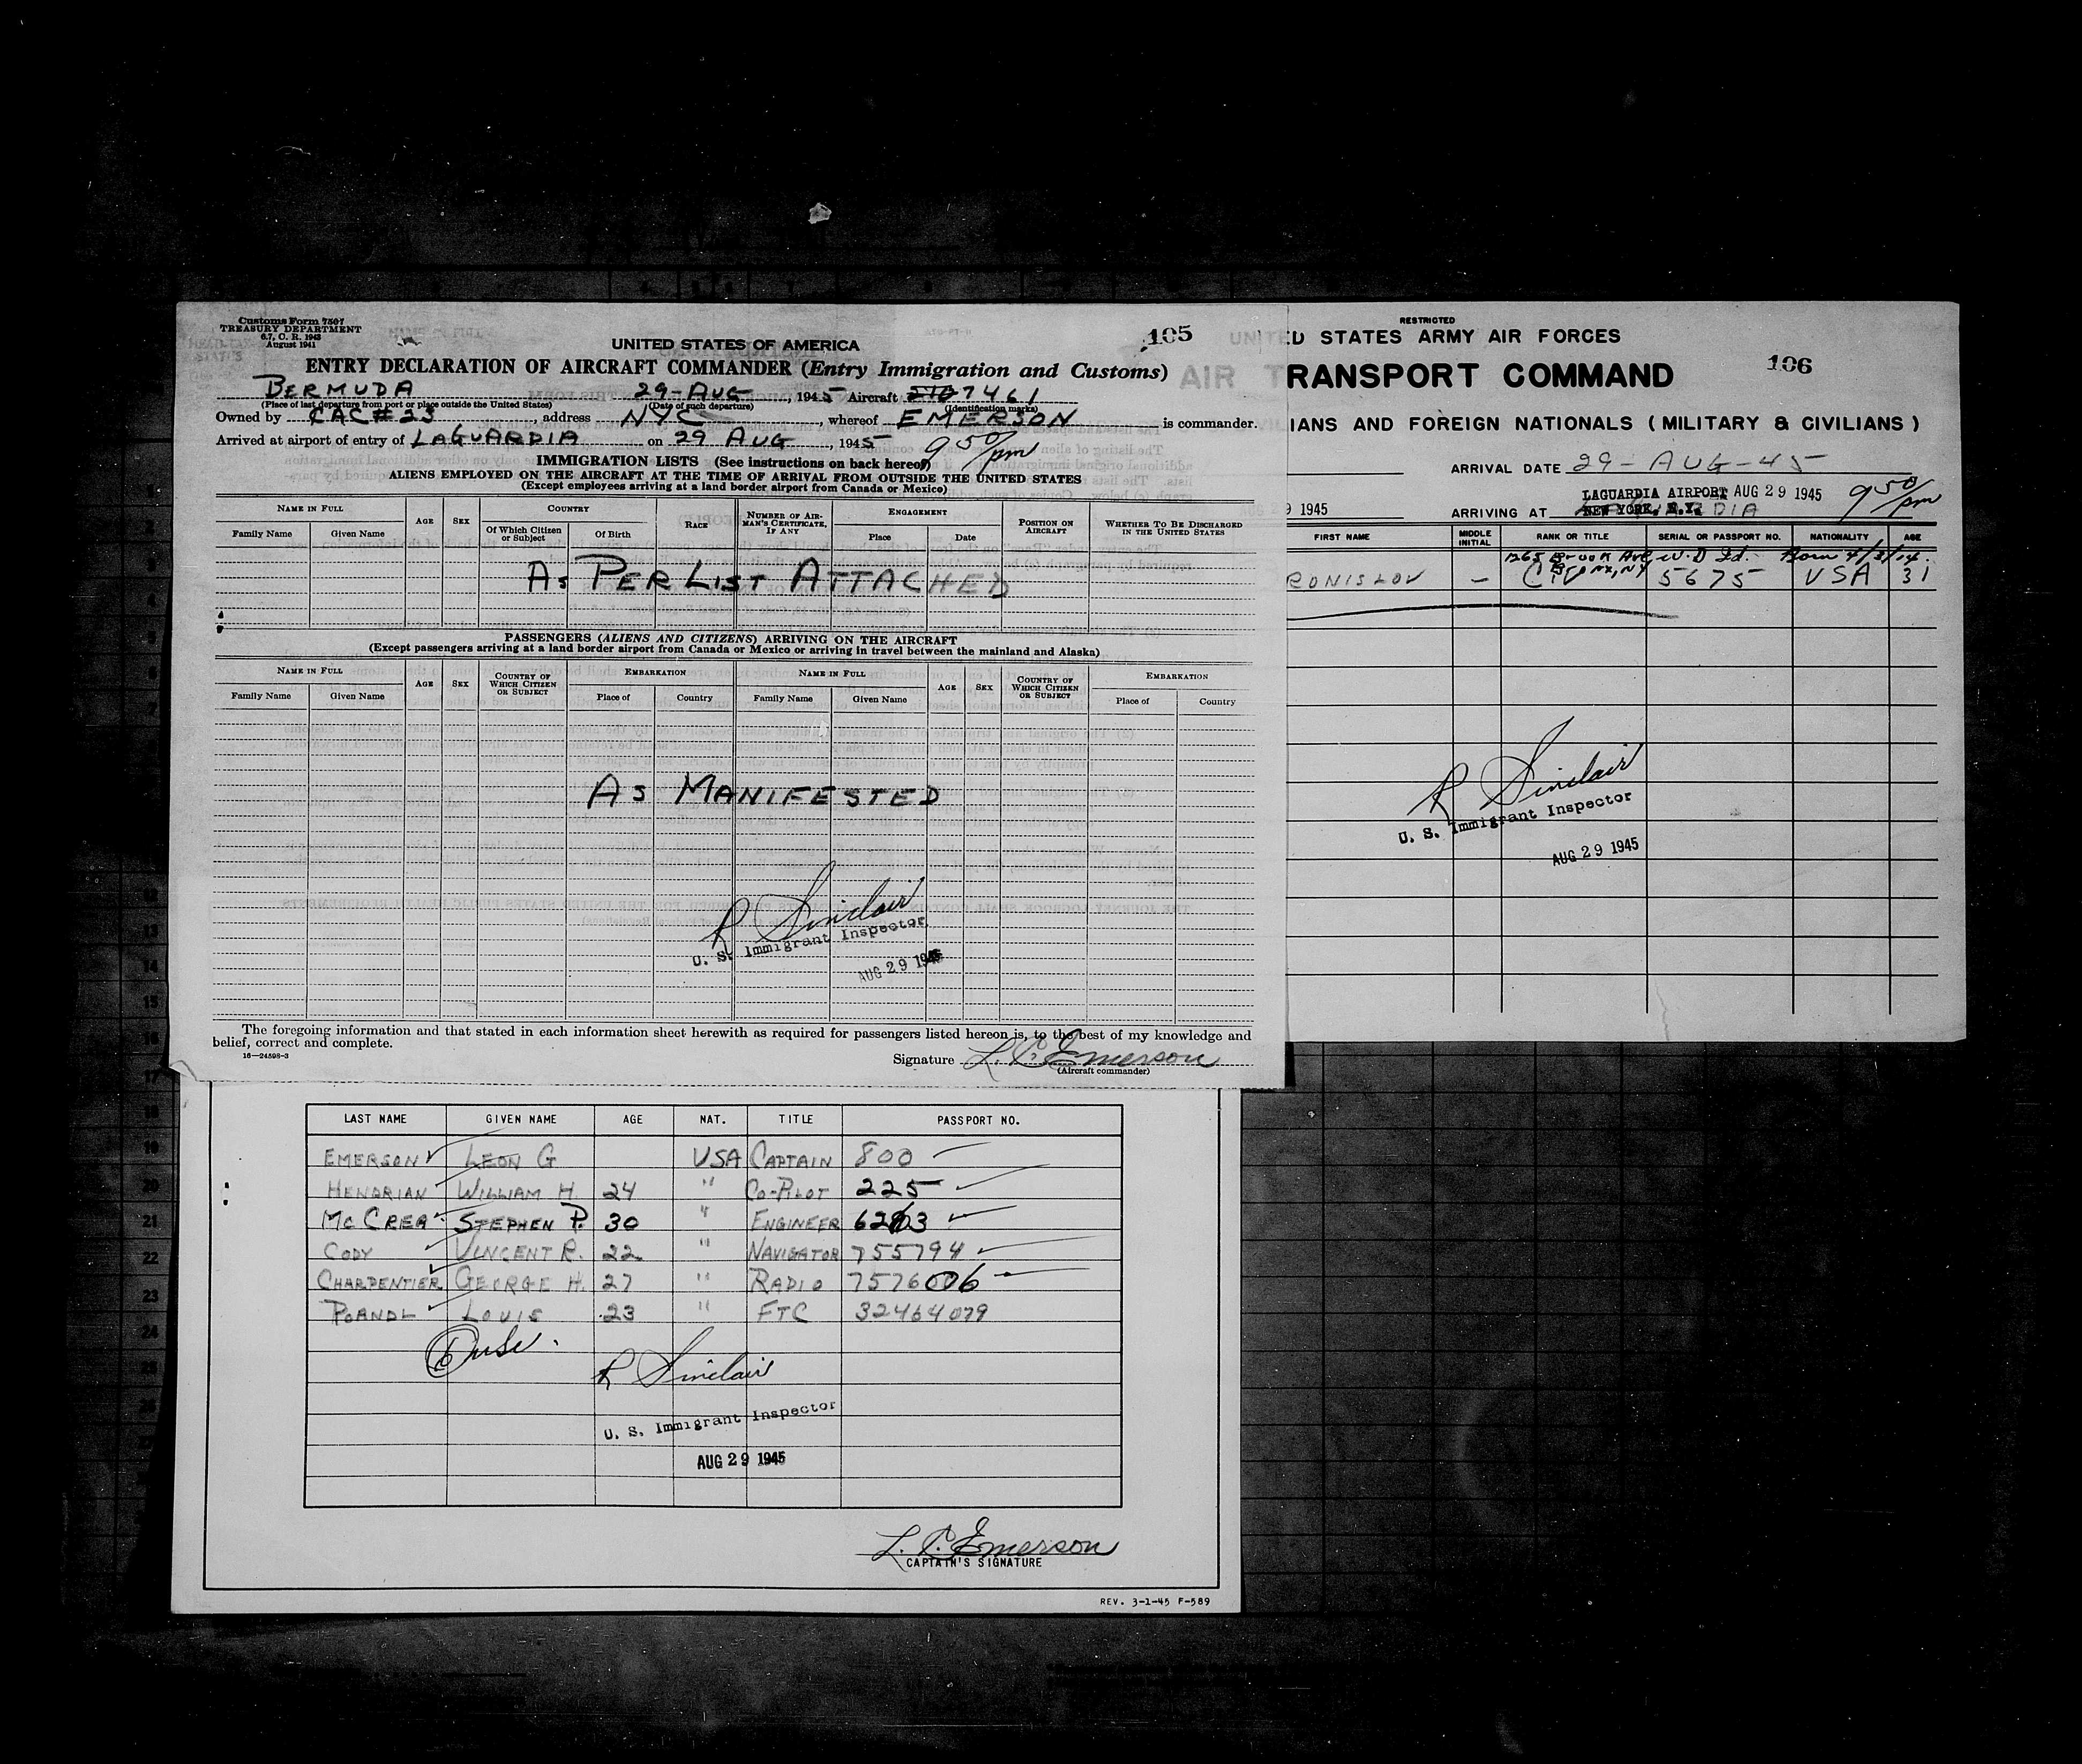 Customs Form 7507
TREASURY DEPARTMENT
6.7, C. R. 1943
August 1941
105
UNITED STATES OF AMERICA
ENTRY DECLARATION OF AIRCRAFT COMMANDER (Entry Immigration and Customs)
BERMUDA 29-AUG, 1945 Aircraft 7461
(Place of last departure from port or place outside the United States) (Date of such departure) (Identification marks)
Owned by CAC#23, address NYC, whereof EMERSON is commander.
Arrived at airport of entry of LAGUARDIA on 29 AUG, 1945 9 50/pm
IMMIGRATION LISTS (See instructions on back hereof)
ALIENS EMPLOYED ON THE AIRCRAFT AT THE TIME OF ARRIVAL FROM OUTSIDE THE UNITED STATES
(Except employees arriving at a land border airport from Canada or Mexico)
NAME IN FULL AGE SEX COUNTRY RACE NUMBER OF AIRMAN'S CERTIFICATE, IF ANY ENGAGEMENT POSITION ON AIRCRAFT WHETHER TO BE DISCHARGED IN THE UNITED STATES
Family Name Given Name Of Which Citizen or Subject Of Birth Place Date
AS PER LIST ATTACHED
PASSENGERS (ALIENS AND CITIZENS) ARRIVING ON THE AIRCRAFT
(Except passengers arriving at a land border airport from Canada or Mexico or arriving in travel between the mainland and Alaska)
NAME IN FULL AGE SEX COUNTRY OF WHICH CITIZEN OR SUBJECT EMBARKATION NAME IN FULL AGE SEX COUNTRY OF WHICH CITIZEN OR SUBJECT EMBARKATION
Family Name Given Name Place of Country Family Name Given Name Place of Country
AS MANIFESTED
R Sinclair
U. S. Immigrant Inspector
AUG 29 1945
The foregoing information and that stated in each information sheet herewith as required for passengers listed hereon is, to the best of my knowledge and
belief, correct and complete.
16—24598-3
Signature L. G. Emerson
(Aircraft commander)
RESTRICTED
UNITED STATES ARMY AIR FORCES
106
AIR TRANSPORT COMMAND
IANS AND FOREIGN NATIONALS (MILITARY & CIVILIANS)
ARRIVAL DATE 29-AUG-45
LAGUARDIA AIRPORT AUG 29 1945 9 50/pm
9 1945 ARRIVING AT NEW YORK, N.Y.
FIRST NAME MIDDLE INITIAL RANK OR TITLE SERIAL OR PASSPORT NO. NATIONALITY AGE
1265 Brook Ave W.D Id. Born 4/3/14.
Bronx, NY
RONISLOV — CIV 5675 USA 31
R Sinclair
U. S. Immigrant Inspector
AUG 29 1945
LAST NAME GIVEN NAME AGE NAT. TITLE PASSPORT NO.
EMERSON LEON G USA CAPTAIN 800
HENDRIAN WILLIAM H. 24 " CO-PILOT 225
MCCREA STEPHEN P. 30 " ENGINEER
CODY VINCENT R. 22 " NAVIGATOR 755794
CHARPENTIER GEORGE H. 27 " RADIO 7576006
LOUIS 23 " FTC 32464079
R Sinclair
U. S. Immigrant Inspector
AUG 29 1945
L. G. Emerson
CAPTAIN'S SIGNATURE
REV. 3-1-45 F-589